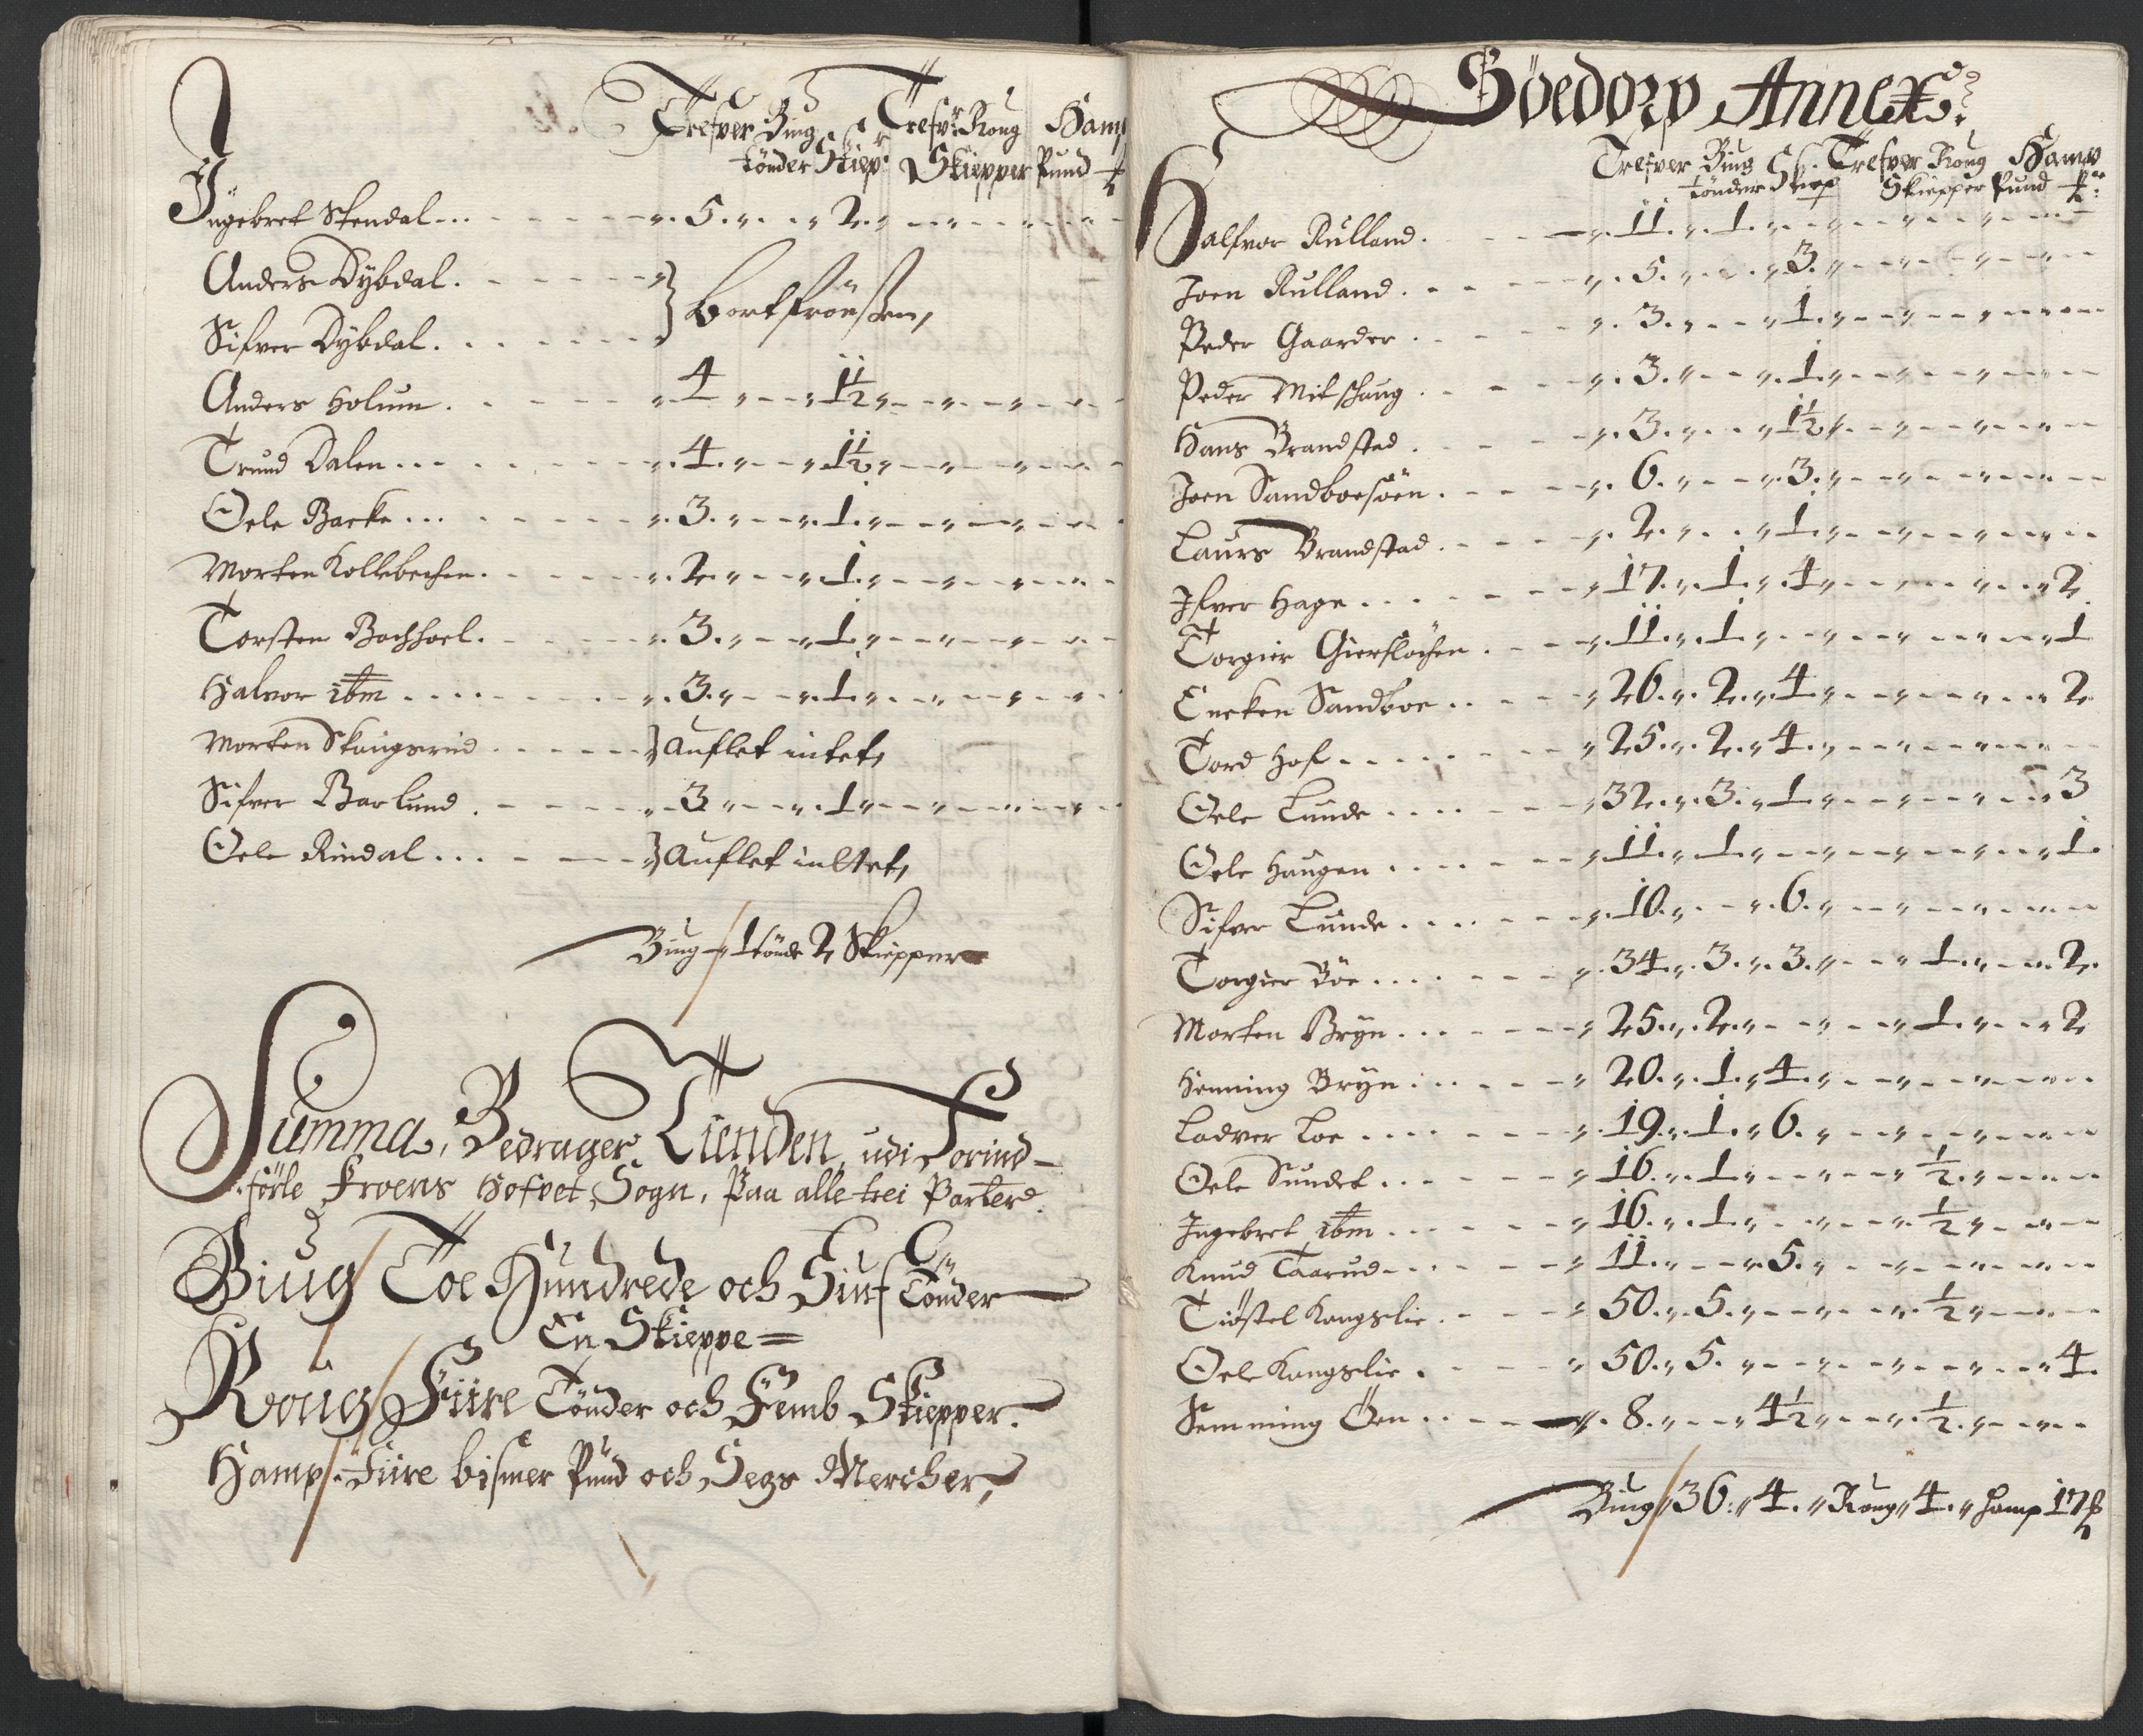 Trefver Biug Trefv: Roug Hamp
tönder Skiep: Skiepper Pund
Ingebret Stendal - 5 - 2
Anders Dybdal
Sifver Dybdal } bortfröesen,
Anders Holum - 4 - 1½
Trund Dalen - 4 - 1½
Oele Backe - 3 - 1
Morten Kollebechen - 2 - 1
Torsten Bachhoel - 3 - 1
Halvor ibm - 3 - 1
Morten Skougsrud } Auflet intet,
Sifver Barlund - 3 - 1
Oele Rindal } Auflet intet,
Biug 1 tönde 2 Skiepper
Summa, Bedrager Tienden udi Forind-
förte Froens Hofvet Sogn, Paa alle trei Parter
Biug Toe Hundrede och Siuf Tönder
En Skieppe =
Roug Fiire Tönder och Femb Skiepper.
Hamp Fiire bismer Pund och Segs Mercher,
Söedorp Annex
Trefver Biug Trefver Roug Hamp
tönder Skiep Skiepper Pund
Halfvor Rulland - 11 - 1
Joen Rulland - 5 - 3
Peder Gaarder - 3 - 1
Peder Mitshaug - 3 - 1
Hans Brandstad - 3 - 1½
Joen Sandboesöen - 6 - 3
Laurs Brandstad - 2 - 1
Ifver Hage - 17 - 1 - 4 - 2
Torgier Gierflochen - 11 - 1 - 1
Encken Sandboe - 26 - 2 - 4 - 2
Tord Hof - 25 - 2 - 4
Oele Lunde - 32 - 3 - 1 - 3
Oele Haugen - 11 - 1 - 1
Sifver Lunde - 10 - 6
Torgier Böe - 34 - 3 - 3 - 1 - 2
Morten Bryn - 25 - 2 - 1 - 2
Henning Bryn - 20 - 1 - 4
Ladver Loe - 19 - 1 - 6
Oele Sundet - 16 - 1 - ½
Ingebret ibm - 16 - 1 - ½
Knud Taarud - 11 - 5
Tiöstel Kongslie - 50 - 5 - ½
Oele Kongslie - 50 - 5 - 4
Hemming Öen - 8 - 4½ - ½
Biug 36 - 4 - Roug 4 - Hamp 17